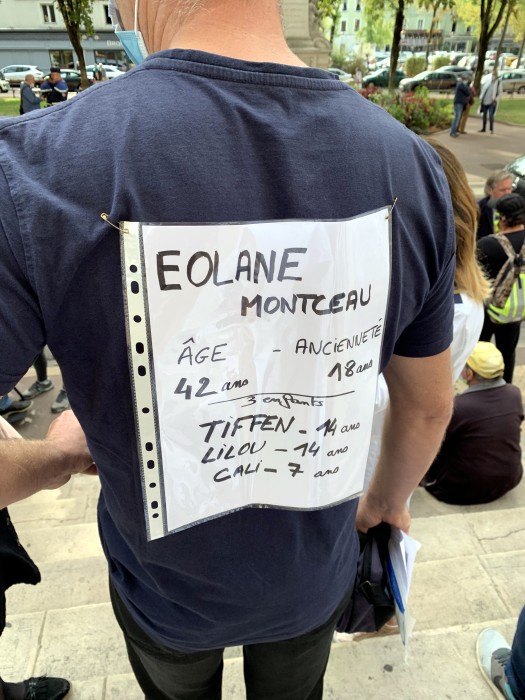 EOLANE
MONTCEAU
ÂGE - ANCIENNETÉ
42 ans 18 ans
3 enfants
TIFFEN - 14 ans
LILOU - 14 ans
CALI - 7 ans